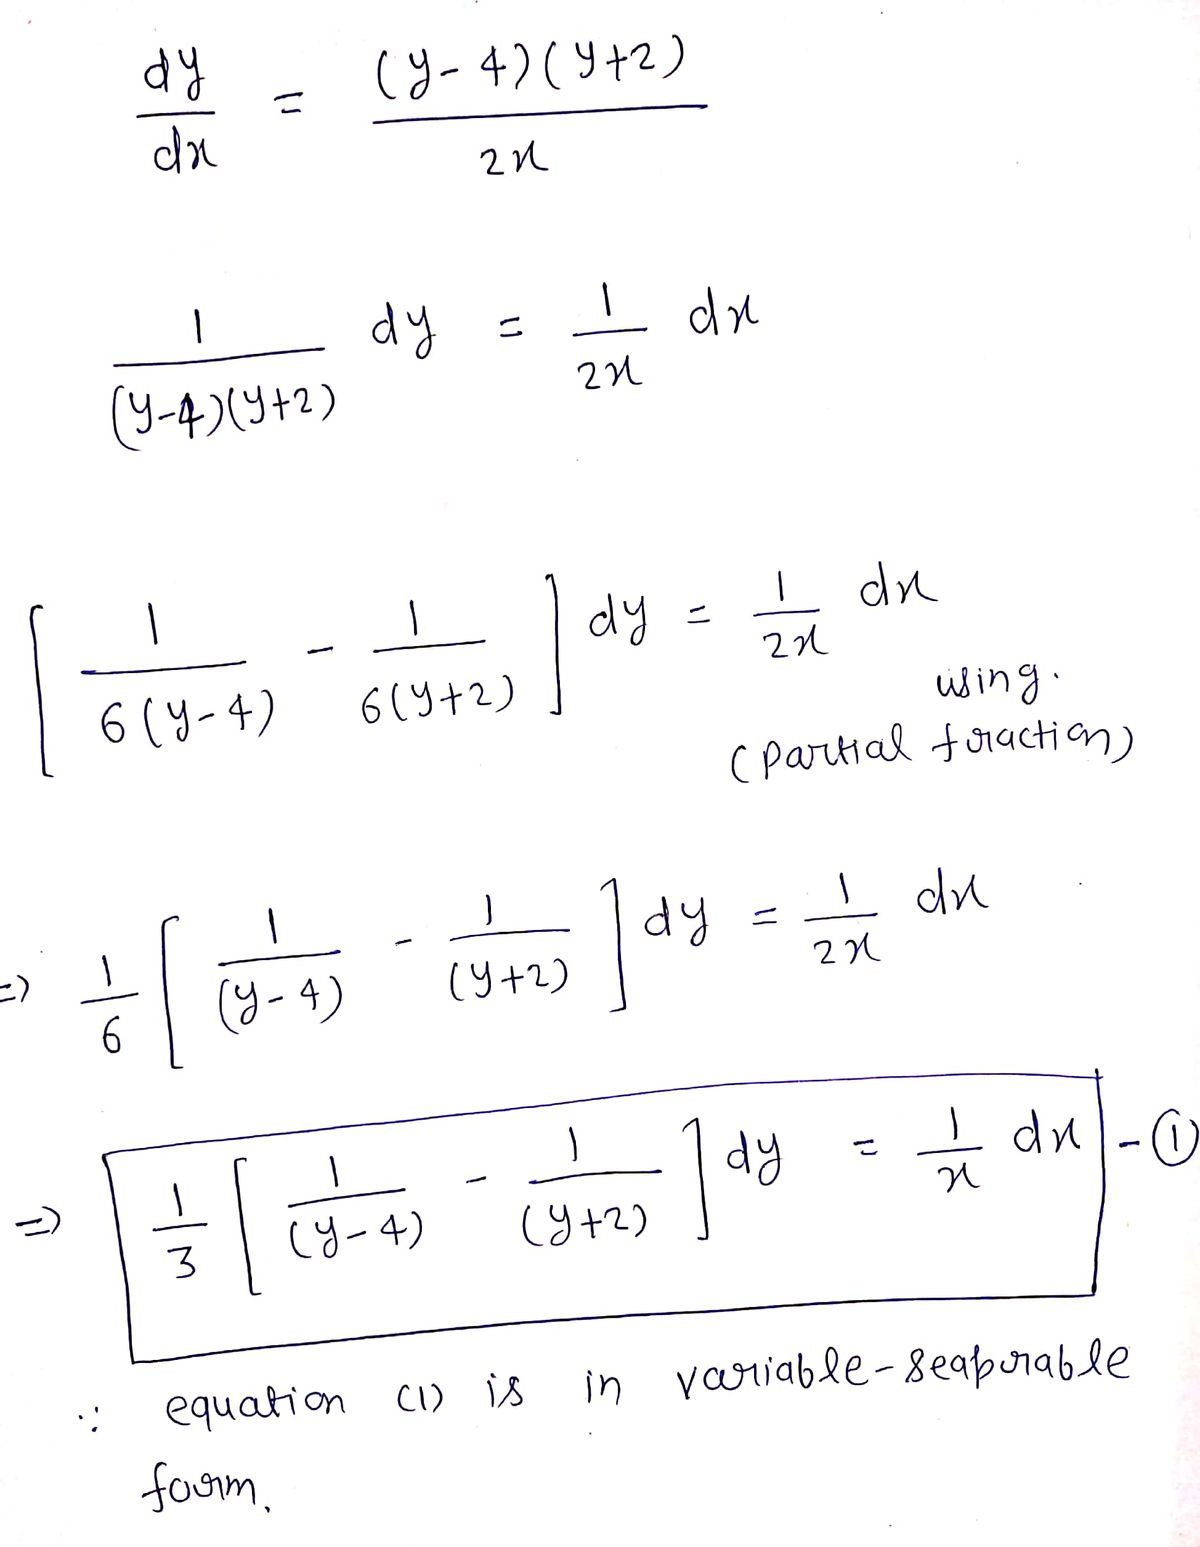 dy/dx = (y-4)(y+2)/2x
1/(y-4)(y+2) dy = 1/2x dx
[ 1/6(y-4) - 1/6(y+2) ] dy = 1/2x dx
using.
(partial fraction)
=) 1/6 [ 1/(y-4) - 1/(y+2) ] dy = 1/2x dx
=) 1/3 [ 1/(y-4) - 1/(y+2) ] dy = 1/x dx - ①
∵ equation (1) is in variable-seaprable
form.